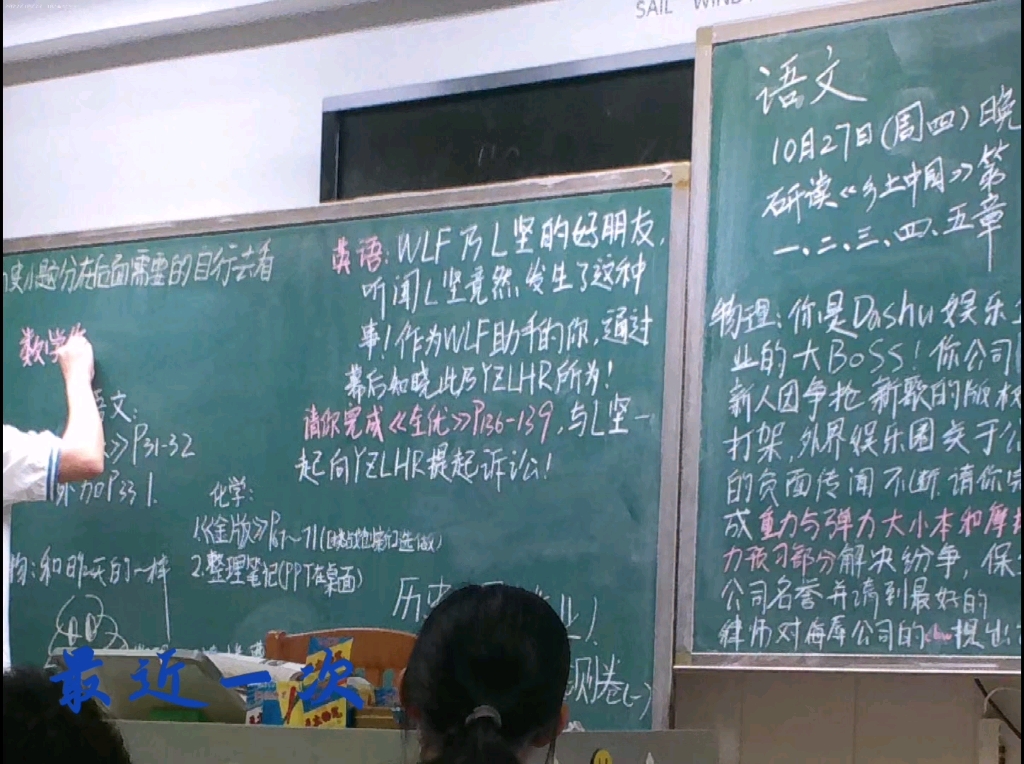 SAIL WIND
小题分在后面需要的自行去看
数学
语文:
》P31-32
P33 1.
化学:
1.《金版》P67~71(
选做)
2.整理笔记(PPT在桌面)
物:和昨天的一样
历史
测卷(一)
英语:WLF乃L坚的好朋友,
听闻L坚竟然发生了这种
事!作为WLF助手的你,通过
幕后知晓此乃YZLHR所为!
请你完成《全优》P136-139,与L坚一
起向YZLHR提起诉讼!
语文
10月27日(周四)晚
研读《乡土中国》第
一、二、三、四、五章
物理:你是Dashu娱乐
业的大BoSS!你公司
新人因争抢新歌的版权
打架,外界娱乐圈关于公
的负面传闻不断请你完
成重力与弹力大小本和摩擦
力预习部分解决纷争,保
公司名誉并请到最好的
律师对每库公司的
提出
最近一次